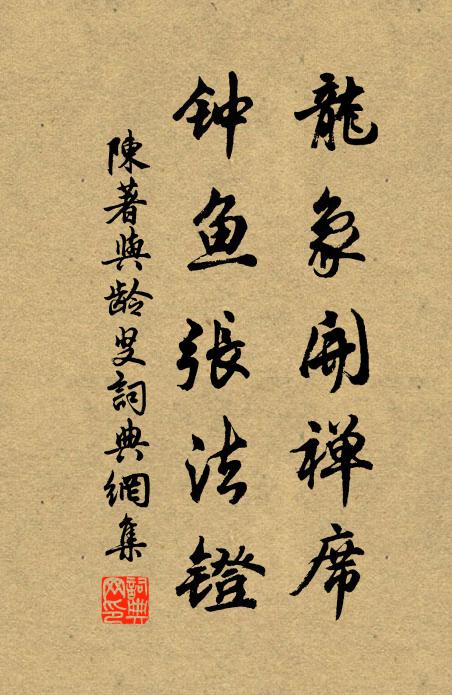 龍象開禅席
钟鱼張法鐙
陳著與龄叟詞典網集
詞典网印